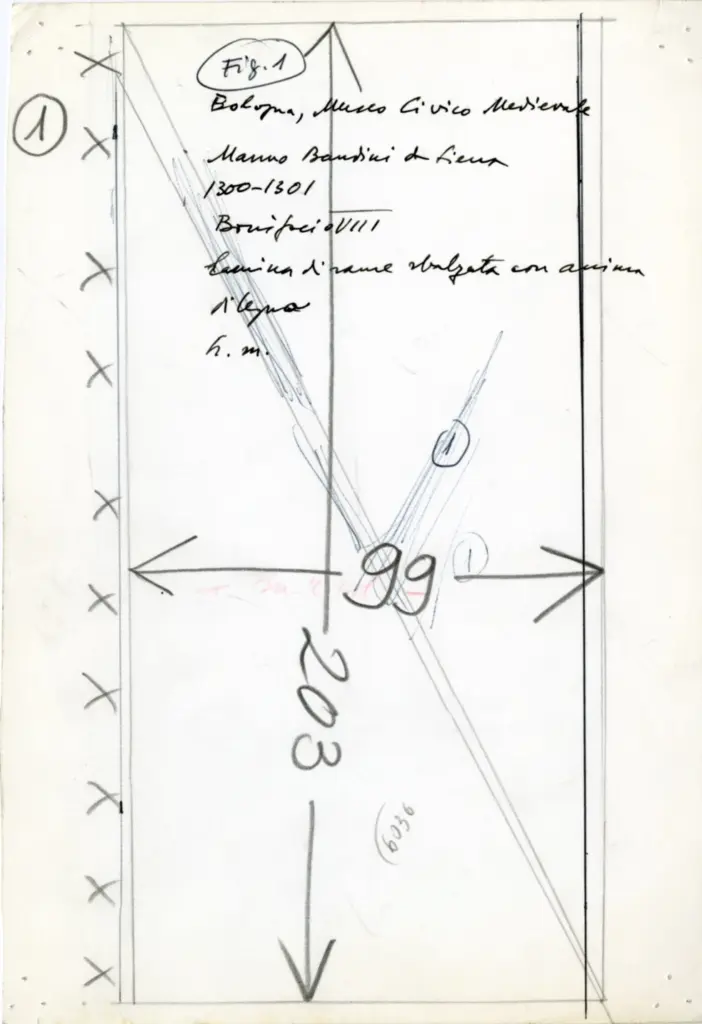 Fig. 1
1
Bologna, Museo Civico Medievale
Manno Bandini da Siena
1300-1301
Bonifacio VIII
lamina di rame sbalzata con anima
di legno
h. m.
1
99
1
203
6036